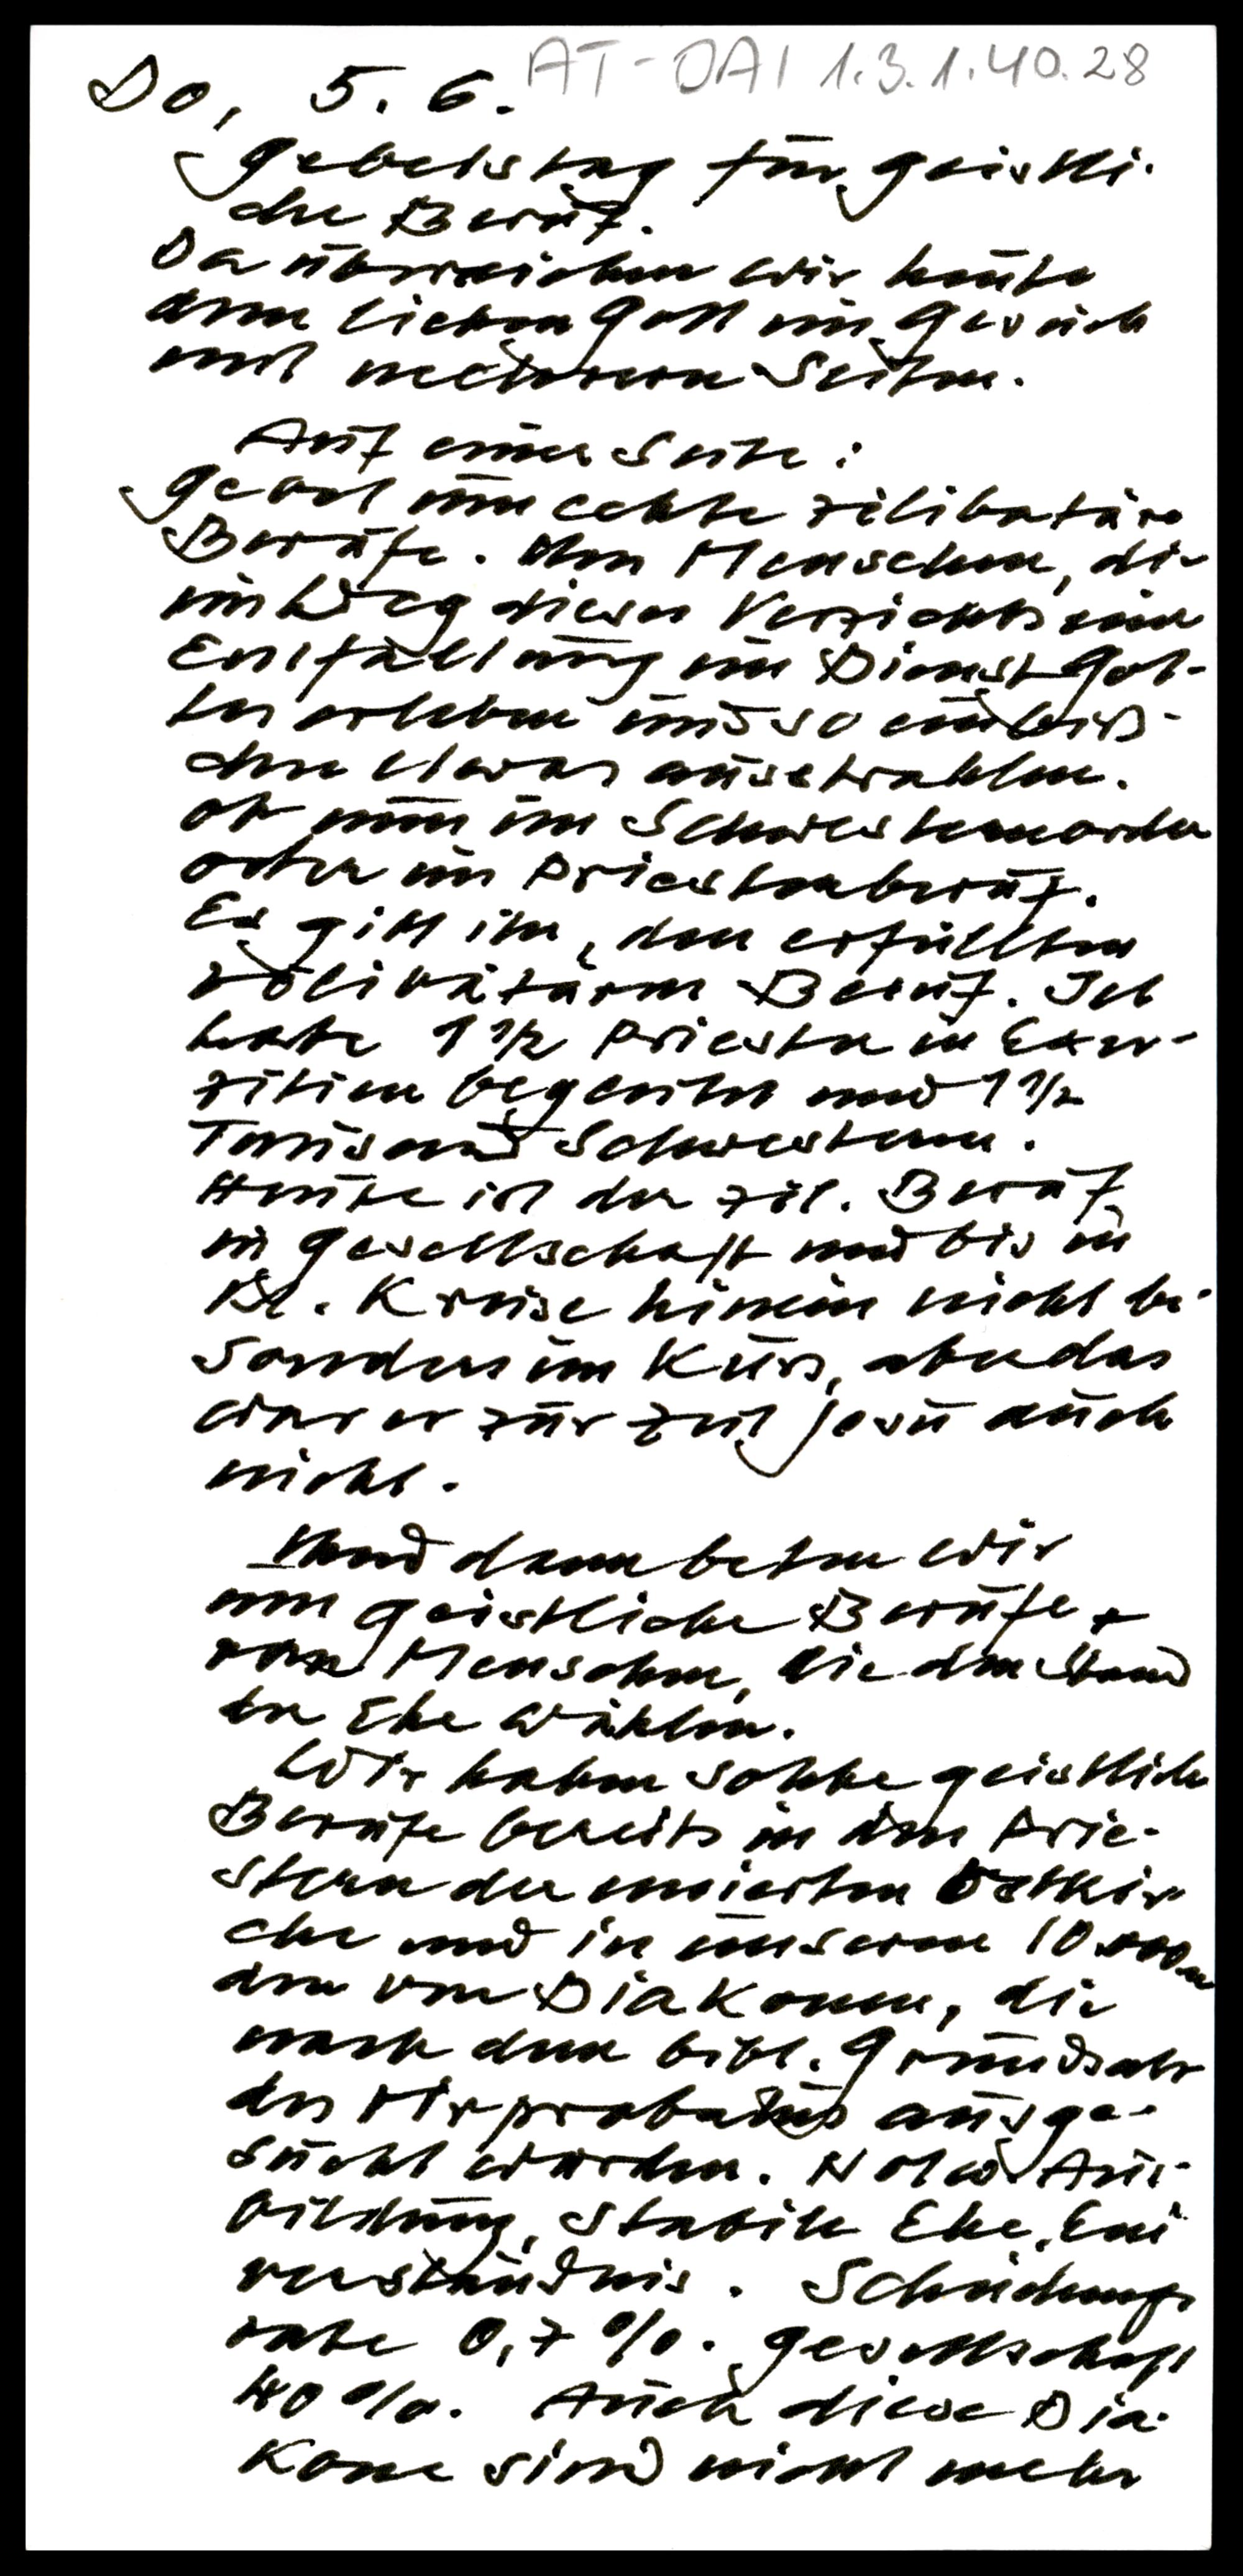 AT-DAI 1.3.1.40.28
Do, 5. 6.
Gebetstag für geistli-
che Beruf.
Da überreichen wir heute
dem lieben Gott ein Gesuch
mit mehreren Seiten.
Auf einer Seite:
Gebet um echte zölibatäre
Berufe. Um Menschen, die
im Weg dieses Verzichts eine
Entfaltung im Dienst Got-
tes erleben und so ein biß-
chen etwas ausstrahlen.
ob nun im Schwesternorden
oder im Priesterberuf.
Es gibt ihn, den erfüllten
zölibatären Beruf. Ich
habe 1 1/2 Priester in Exer-
zitien begleitet und 1 1/2
Tausend Schwestern.
Heute ist der zöl. Beruf
in Gesellschaft und bis in
kl. Kreise hinein nicht be-
sonders im Kurs, aber das
war er zur Zeit Jesu auch
nicht.
Und dann beten wir
um geistliche Berufe
von Menschen, die den Stand
der Ehe wählen.
Wir haben solche geistliche
Berufe bereits in den Prie-
stern der unierten Ostkir-
che und in unseren 10.000en
den von Diakonen, die
nach dem bibl. Grundsatz
des Vir probatus ausge-
sucht wurden. Notw. Aus-
bildung, stabile Ehe, Ein
verständnis. Scheidungs
rate 0,7 %. Gesellschaft
40 %. Auch diese Dia-
kone sind nicht mehr